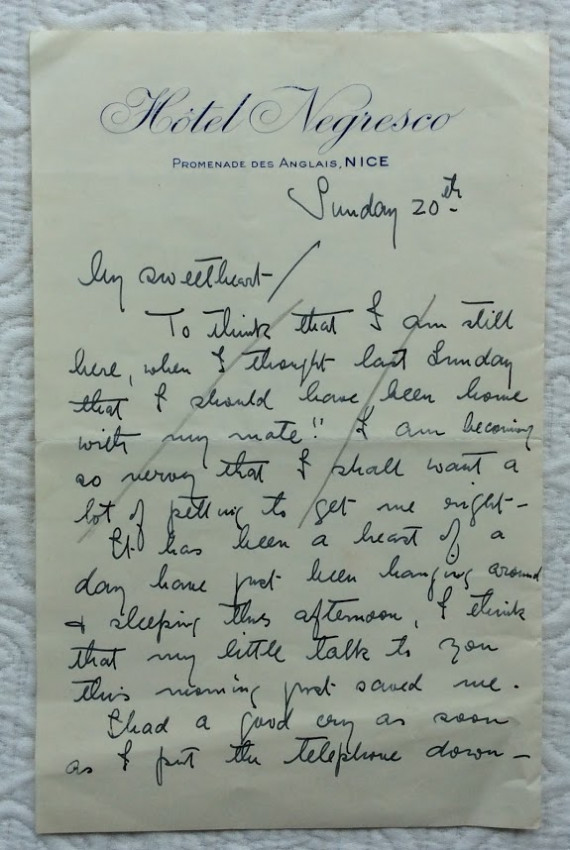 Hôtel Negresco
PROMENADE DES ANGLAIS, NICE
Sunday 20th
My sweetheart-
To think that I am still
here, when I thought last Sunday
that I should have been home
with my mate!! I am becoming
so nervy that I shall want a
lot of petting to get me right-
It has been a beast of a
day have just been hanging around
& sleeping this afternoon, I think
that my little talk to you
this morning just saved me.
I had a good cry as soon
as I put the telephone down-